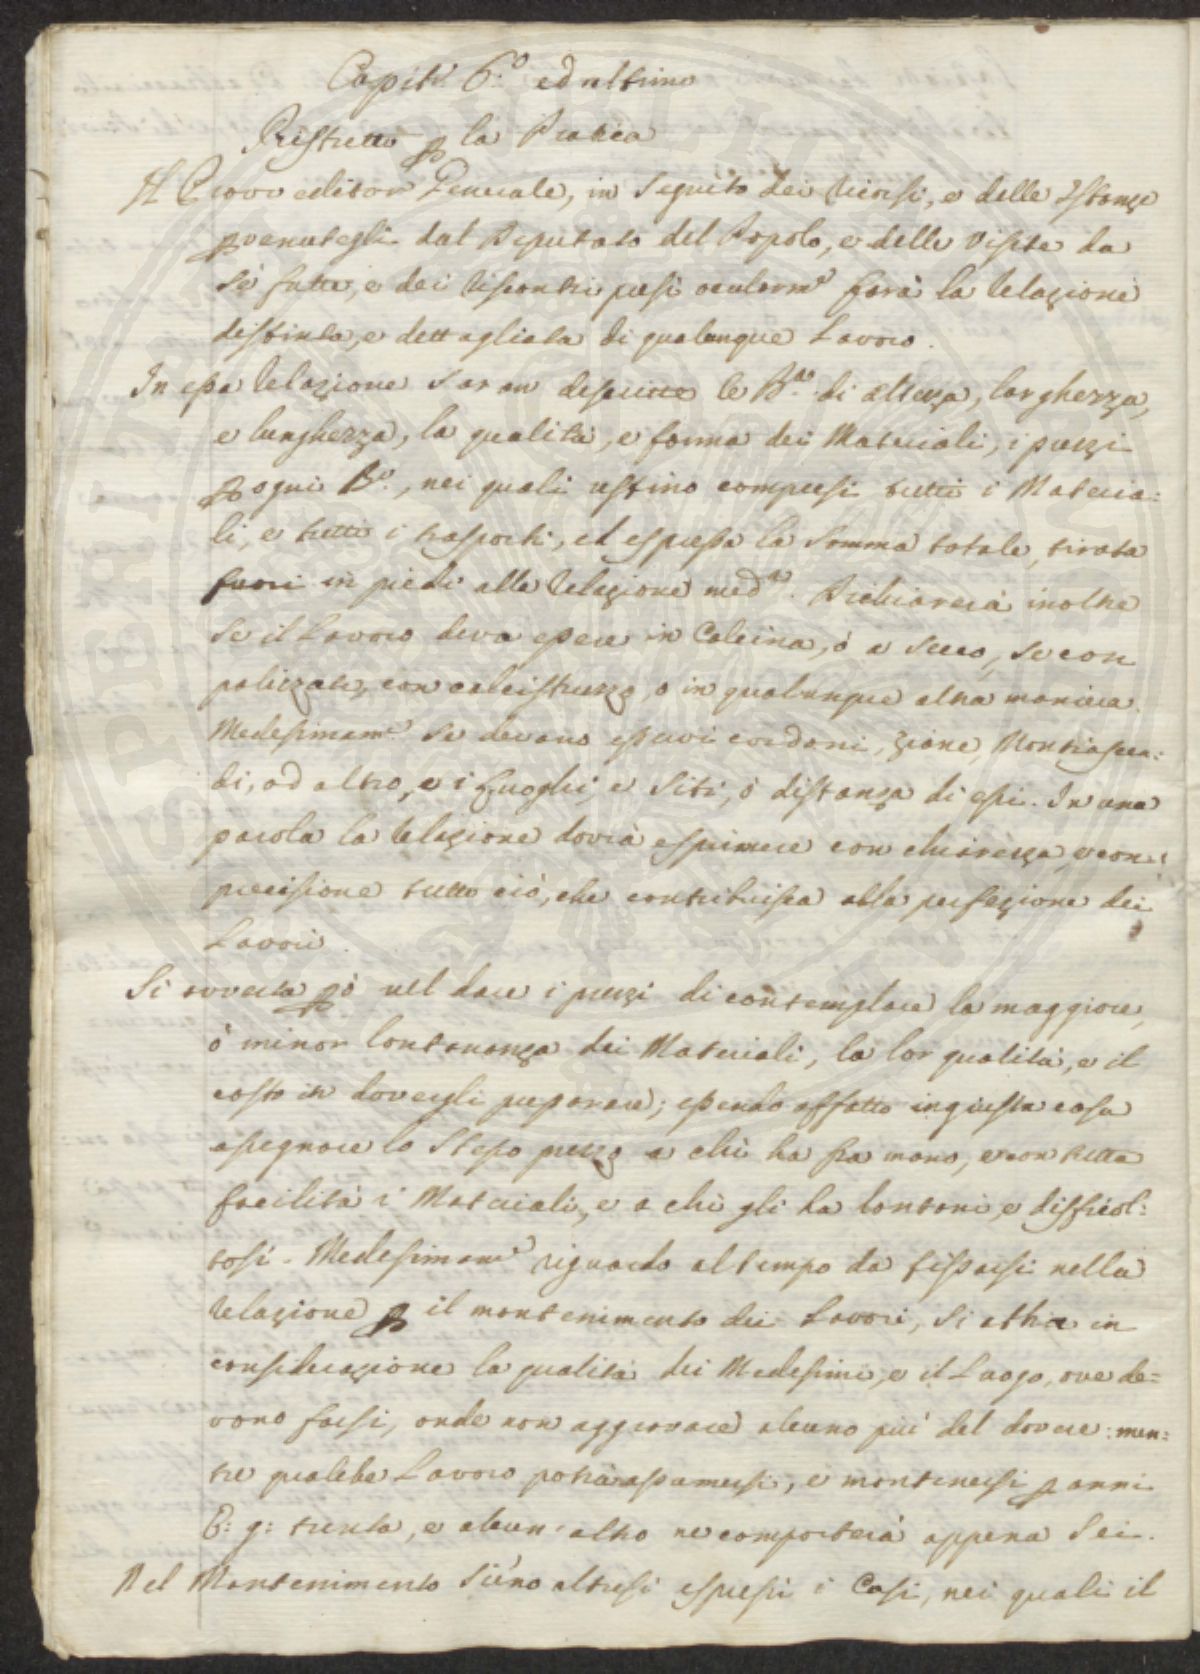 Capit.º 6.º ed ultimo
Ristretto p la Pratica
Il Proveditor Generale, in seguito dei Ricorsi, e delle Istanze
pvenutegli dal Deputato del Popolo, e delle visite da
sè fatte, e dei riscontri presi ocularm.e farà la Relazione
distinta, e dettagliata di qualunque Lavoro.
In essa Relazione saran descritte le B.a di altezza, larghezza,
e lunghezza, la qualità, e forma dei Materiali, i prezzi
p ogni B.o, nei quali restino compresi tutti i Materia:
li, e tutti i trasporti, ed espressa la Somma totale, tirata
fuori in piedi alla Relazione med.a. Dichiarerà inoltre
se il Lavoro deva essere in Calcina, ò a secco, se con
palizzate, con calcistruzzo, o in qualunque altra maniera.
Medesimam.e se devano esservi cordoni, Montrascen:
di, od altro, e i Luoghi, e Siti, ò distanza di essi. In una
parola la Relazione dovrà esprimere con chiarezza, e con
precisione tutto ciò, che contribuisca alla perfezione dei
Lavori.
Si avverta pò nel dare i prezzi di contemplare la maggiore,
ò minor lontananza dei Materiali, la lor qualità, e il
costo in dovergli preparare; essendo affatto ingiusta cosa
assegnare lo stesso prezzo a chi ha fra mano, e con tutta
facilità i Materiali, e a chi gli ha lontani, e difficol:
tosi. Medesimam.e riguardo al tempo da fissarsi nella
Relazione p il mantenimento dei Lavori, si abbia in
considerazione la qualità dei Medesimi, e il Luogo, ove de=
vono farsi, onde non aggravare alcuno più del dovere: men:
tre qualche Lavoro potrà assumersi, e mantenersi p anni
E: g: trenta, e alcun' altro ne comporterà appena sei.
Nel Mantenimento siano altresì espressi i Casi, nei quali il